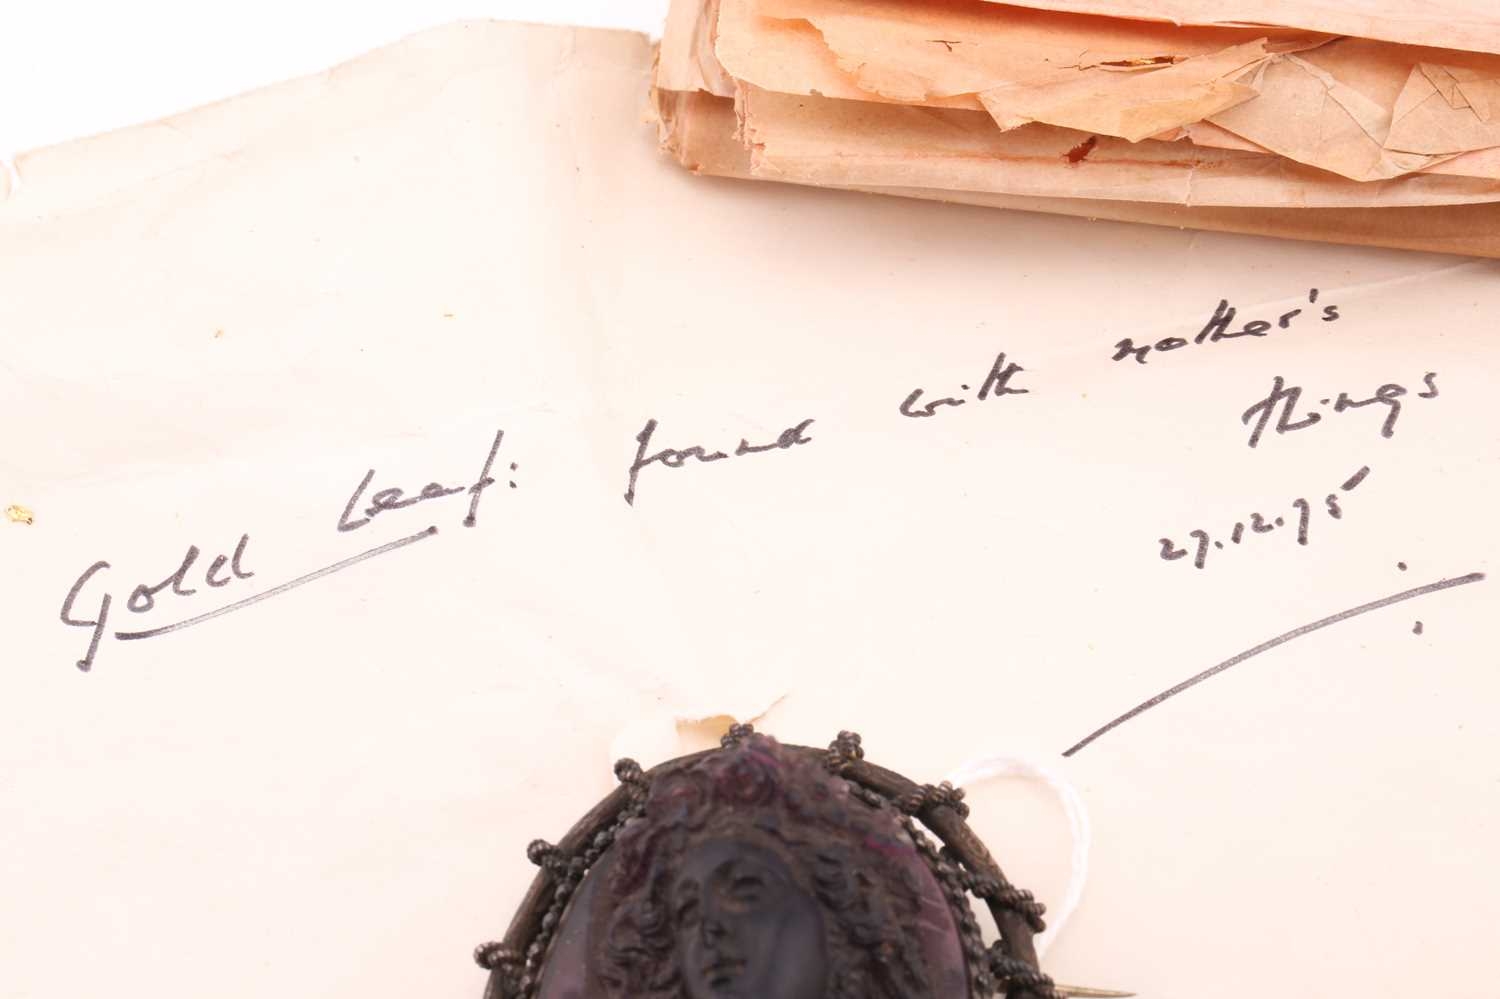 Gold Leaf: found with mother's
things
27.12.75